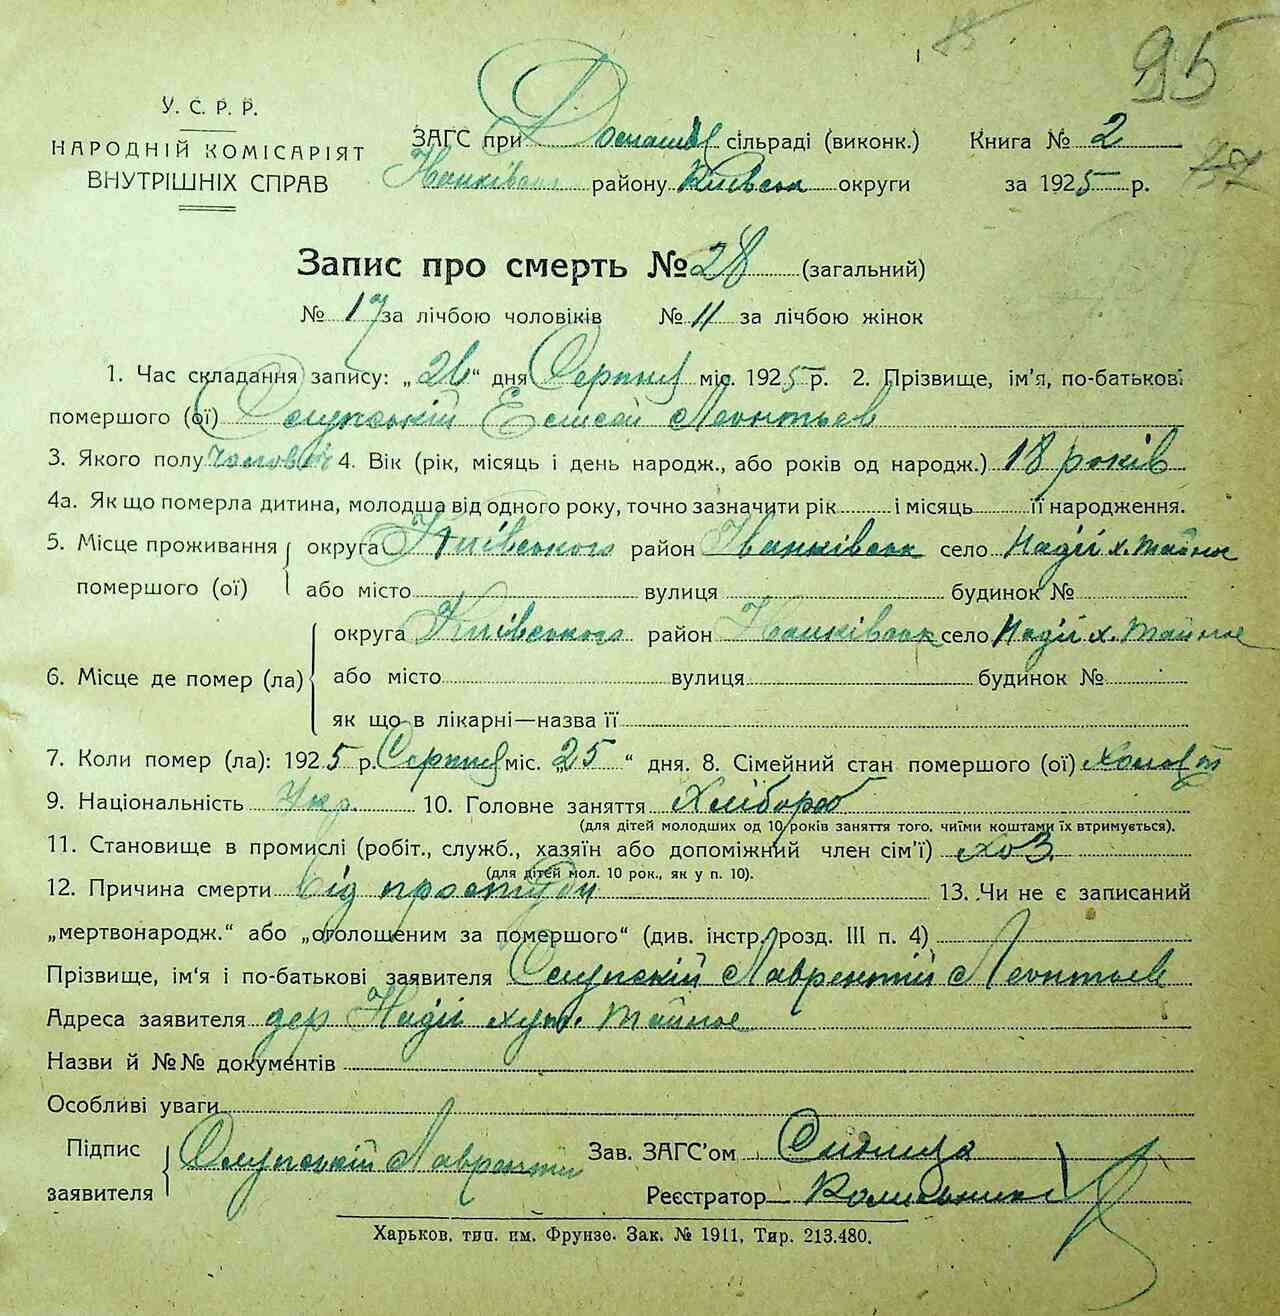 95
У. С. Р. Р.
НАРОДНІЙ КОМІСАРІЯТ
ВНУТРІШНІХ СПРАВ
ЗАГС при сільраді (виконк.) Книга № 2
району Київськ округи за 1925 р.
Запис про смерть № 28 (загальний)
№ 17 за лічбою чоловіків № 11 за лічбою жінок
1. Час складання запису: „26“ дня Серпня міс. 1925 р. 2. Прізвище, ім’я, по-батькові
помершого (ої) Слупській Єлисей Леонтьев
3. Якого полу чоловіч 4. Вік (рік, місяць і день народж., або років од народж.) 18 років
4а. Як що померла дитина, молодша від одного року, точно зазначити рік і місяць її народження.
5. Місце проживання помершого (ої) округа Київського район Іванківськ село Надії х. Тайное
або місто вулиця будинок №
6. Місце де помер (ла) округа Київського район село Надії х. Тайное
або місто вулиця будинок №
як що в лікарні—назва її
7. Коли помер (ла): 1925 р. Серпня міс. „25“ дня. 8. Сімейний стан помершого (ої) Холостой
9. Національність Укр. 10. Головне заняття Хлібороб
(для дітей молодших од 10 років заняття того, чиїми коштами їх втримується).
11. Становище в промислі (робіт., служб., хазяїн або допоміжний член сім’ї) хоз.
(для дітей мол. 10 рок., як у п. 10).
12. Причина смерти Від простуди 13. Чи не є записаний
„мертвонародж.“ або „оголошеним за помершого“ (див. інстр. розд. III п. 4)
Прізвище, ім’я і по-батькові заявителя Слупскій Лаврентій Леонтьев
Адреса заявителя дер Надії хут. Тайное
Назви й №№ документів
Особливі уваги
Підпис заявителя Слупскій Лаврентий Зав. ЗАГС’ом
Реєстратор
Харьков, тип. им. Фрунзе. Зак. № 1911, Тир. 213.480.